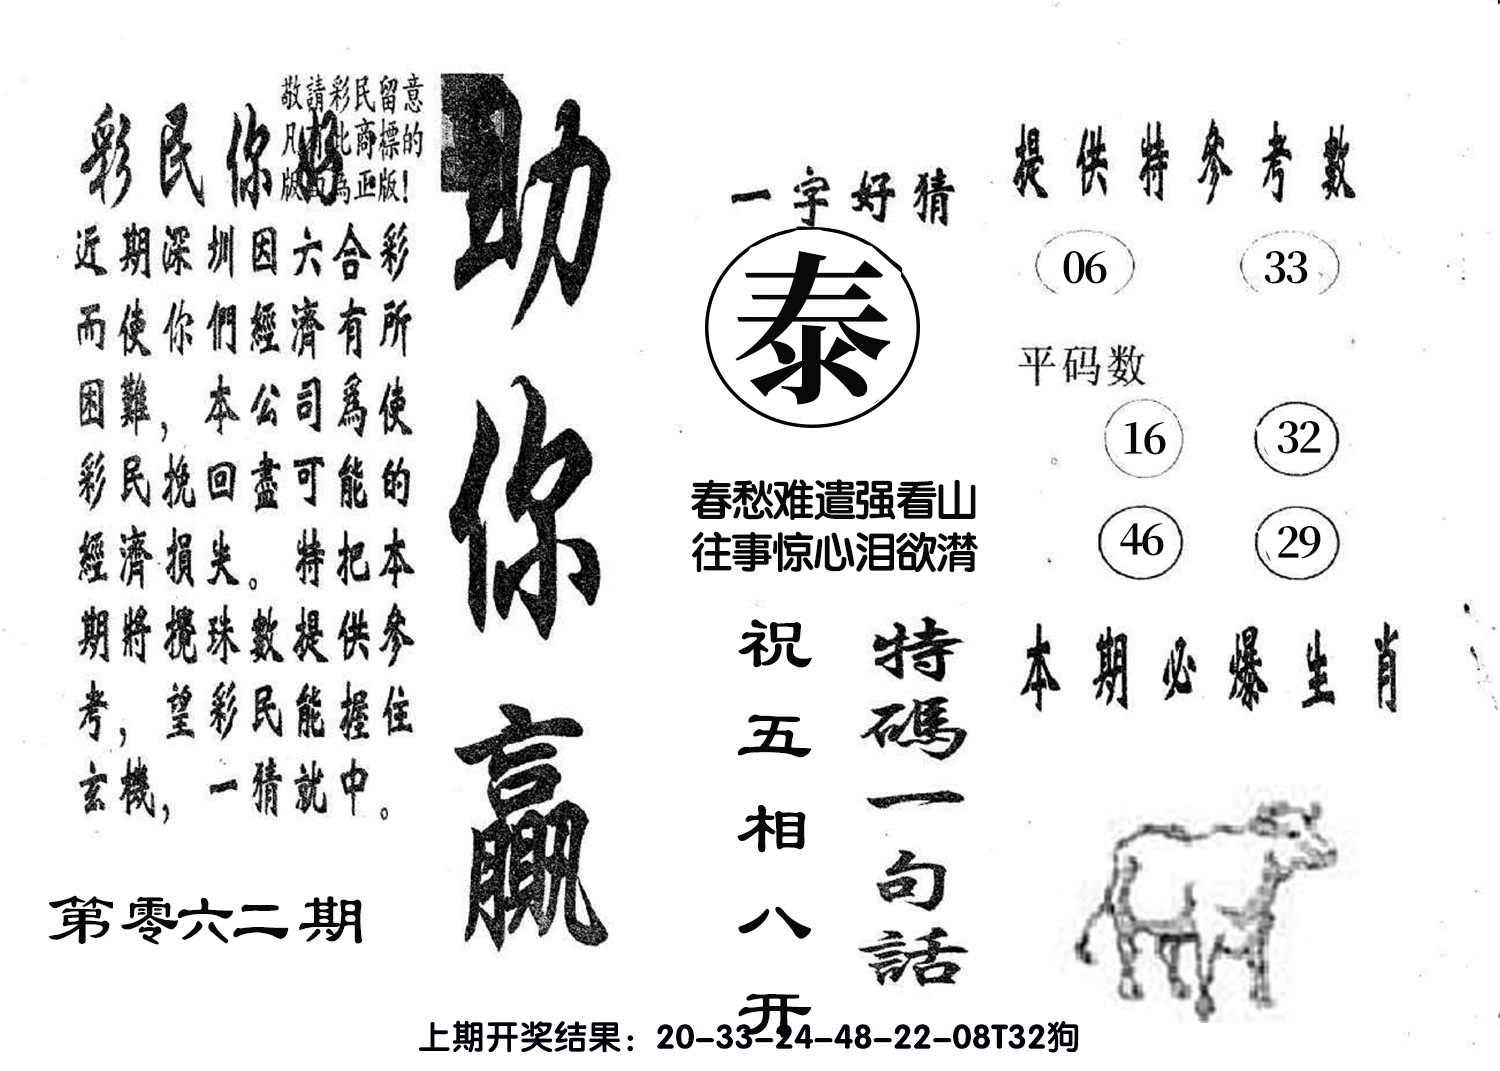 敬請彩民留意
凡有此商標的
版面為正版！
彩民你好
近期深圳因六合彩
而使你們經濟有所
困難，本公司爲使
彩民挽回盡可能的
經濟損失。特把本
期將攪珠數提供參
考，望彩民能握住
玄機，一猜就中。
第零六二期
助你贏
一字好猜
泰
春愁难遣强看山
往事惊心泪欲潸
特碼一句話
祝五相八开
提供特參考數
06 33
平码数
16 32
46 29
本期必爆生肖
上期开奖结果：20-33-24-48-22-08T32狗